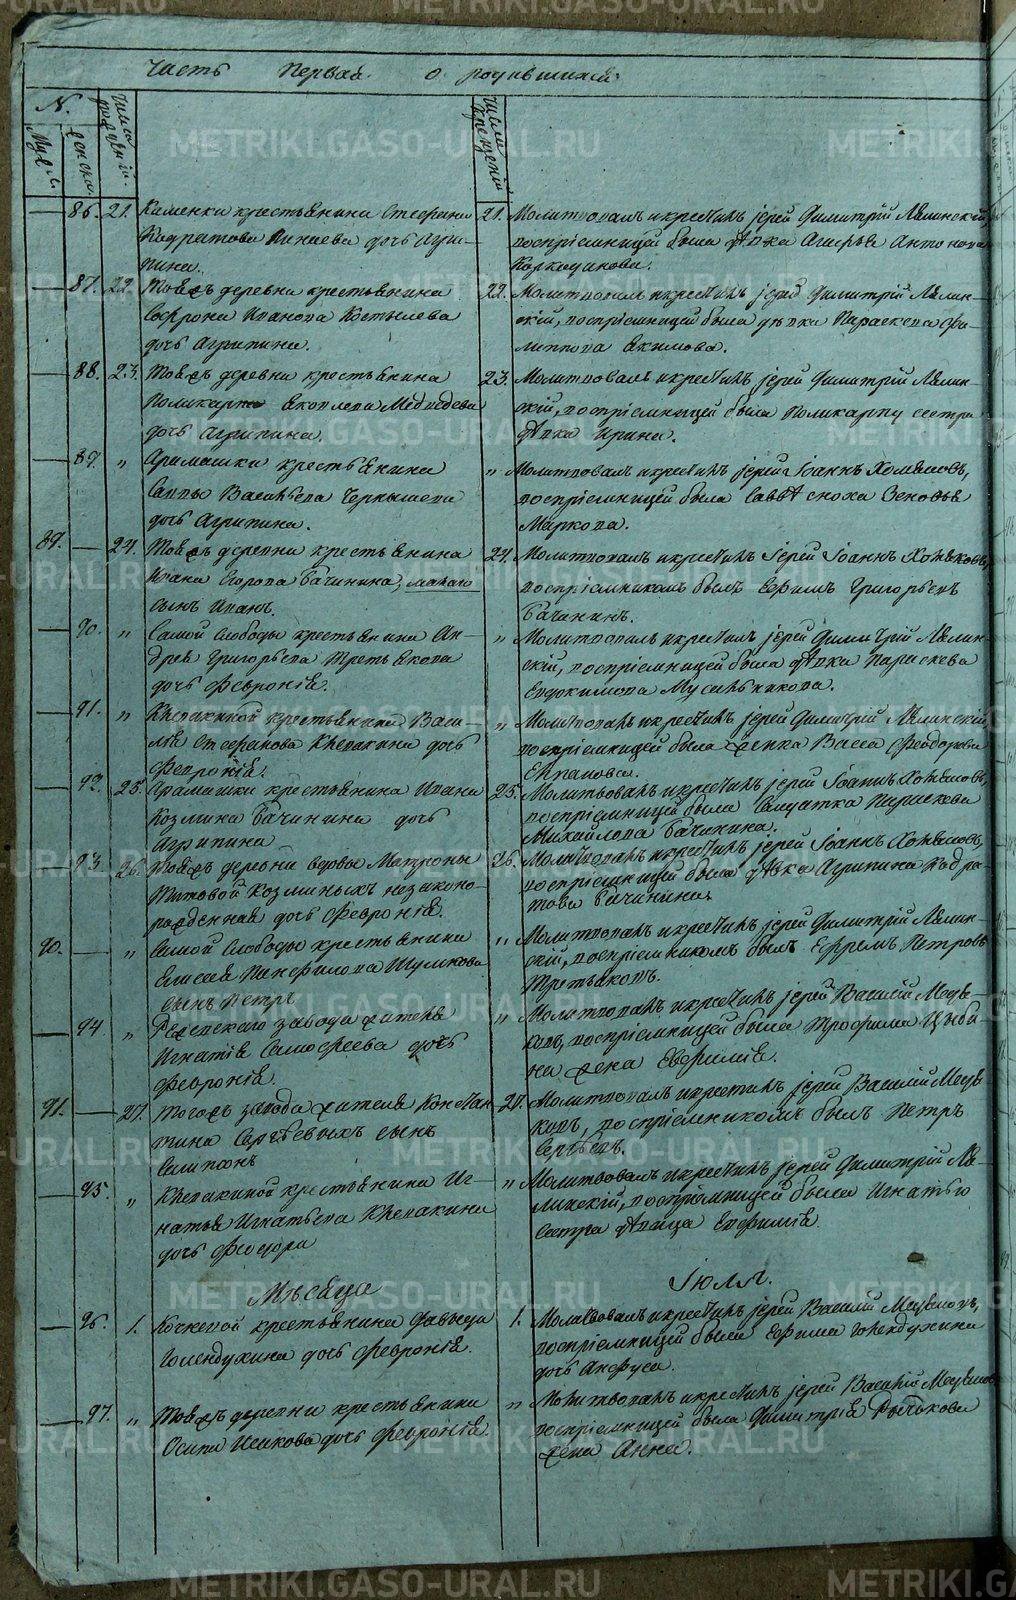 Часть Первая о родившихся
N.
Муж.
женска.
Число рожденій.
Число крещеній
86. 21. Каменки крестьянина Стефана
Кодратова Минаева дочь Агри-
пина.
21. Молитвовалъ и крестилъ іерей Димитрій Ляминскій,
воспріемницей была дѣвка Агафья Антонова
Коркодинова.
87. 22. Тояжъ деревни крестьянина
Софрона Иванова Костылева
дочь Агрипина.
22. Молитвовалъ и крестилъ іерей Димитрій Лямин-
скій, воспріемницей была дѣвка Параскева Фи-
липпова Екимова.
88. 23. Тояжъ деревни крестьянина
Поликарпа Яковлева Медведева
дочь Агрипина.
23. Молитвовалъ и крестилъ іерей Димитрій Лямин-
скій, воспріемницей была Поликарпу сестра
дѣвка Ирина.
89. „ Арамашки крестьянина
Саввы Васильева Чернышева
дочь Агрипина.
„ Молитвовалъ и крестилъ іерей Іоаннъ Хомяковъ,
воспріемницей была Саввѣ сноха Зеновья
Маркова.
89. — 24. Тояжъ деревни крестьянина
Ивана Егорова Бачинина, малаго
сынъ Иванъ.
24. Молитвовалъ и крестилъ іерей Іоаннъ Хомяковъ,
воспріемникомъ былъ Ефимъ Григорьевъ
Бачининъ.
90. „ Самой Слободы крестьянина Ан-
дрея Григорьева Третьякова
дочь Февронія.
„ Молитвовалъ и крестилъ іерей Димитрій Лямин-
скій, воспріемницей была дѣвка Параскева
Евдокимова Мусальникова.
91. „ Клевакиной крестьянина Васи-
лья Стефанова Клевакина дочь
Февронія.
„ Молитвовалъ и крестилъ іерей Димитрій Ляминскій,
воспріемницей была женка Васса Феодорова
92. 25. Арамашки крестьянина Ивана
Козмина Бачинина дочь
Агрипина
25. Молитвовалъ и крестилъ іерей Іоаннъ Хомяковъ,
воспріемницей была Солдатка Параскева
Михайлова Бачинина.
93. 26. Тояжъ деревни вдовы Матроны
Титовой Козминыхъ незаконо-
рожденная дочь Февронія.
26. Молитвовалъ и крестилъ іерей Іоаннъ Хомяковъ,
воспріемницей была дѣвка Агрипина Кодра-
това Бачинина.
90. — „ Самой Слободы крестьянина
Елисея Панфилова Шумкова
сынъ Петръ
„ Молитвовалъ и крестилъ іерей Димитрій Лямин-
скій, воспріемникомъ былъ Ефремъ Петровъ
Третьяковъ.
94 „ Режевскаго завода жителя
Игнатія Самофеева дочь
Февронія.
„ Молитвовалъ и крестилъ іерей Василій Медвѣ-
ковъ, воспріемницей была Трофима Цыба-
на жена Евфимія.
91. — 27. Тогожъ завода жителя Констан-
тина Сергѣевыхъ сынъ
27. Молитвовалъ и крестилъ іерей Василій Медвѣ-
ковъ, воспріемникомъ былъ Петръ
Сергѣевъ.
95. „ Клевакиной крестьянина Иг-
натья Игнатьева Клевакина
дочь Феодора
„ Молитвовалъ и крестилъ іерей Димитрій Ля-
минскій, воспріемницей была Игнатью
сестра дѣвица Евфимія.
Мѣсяца Іюля.
96. 1. Кочневой крестьянина Давыда
Голендухина дочь Февронія.
1. Молитвовалъ и крестилъ іерей Василій Медвѣковъ,
воспріемницей была Ефима Голендухина
дочь Анфуса.
97. „ Тояжъ деревни крестьянина
Осипа Исакова дочь Февронія.
„ Молитвовалъ и крестилъ іерей Василій Медвѣковъ
воспріемницей была Димитрія Рычкова
жена Анна.